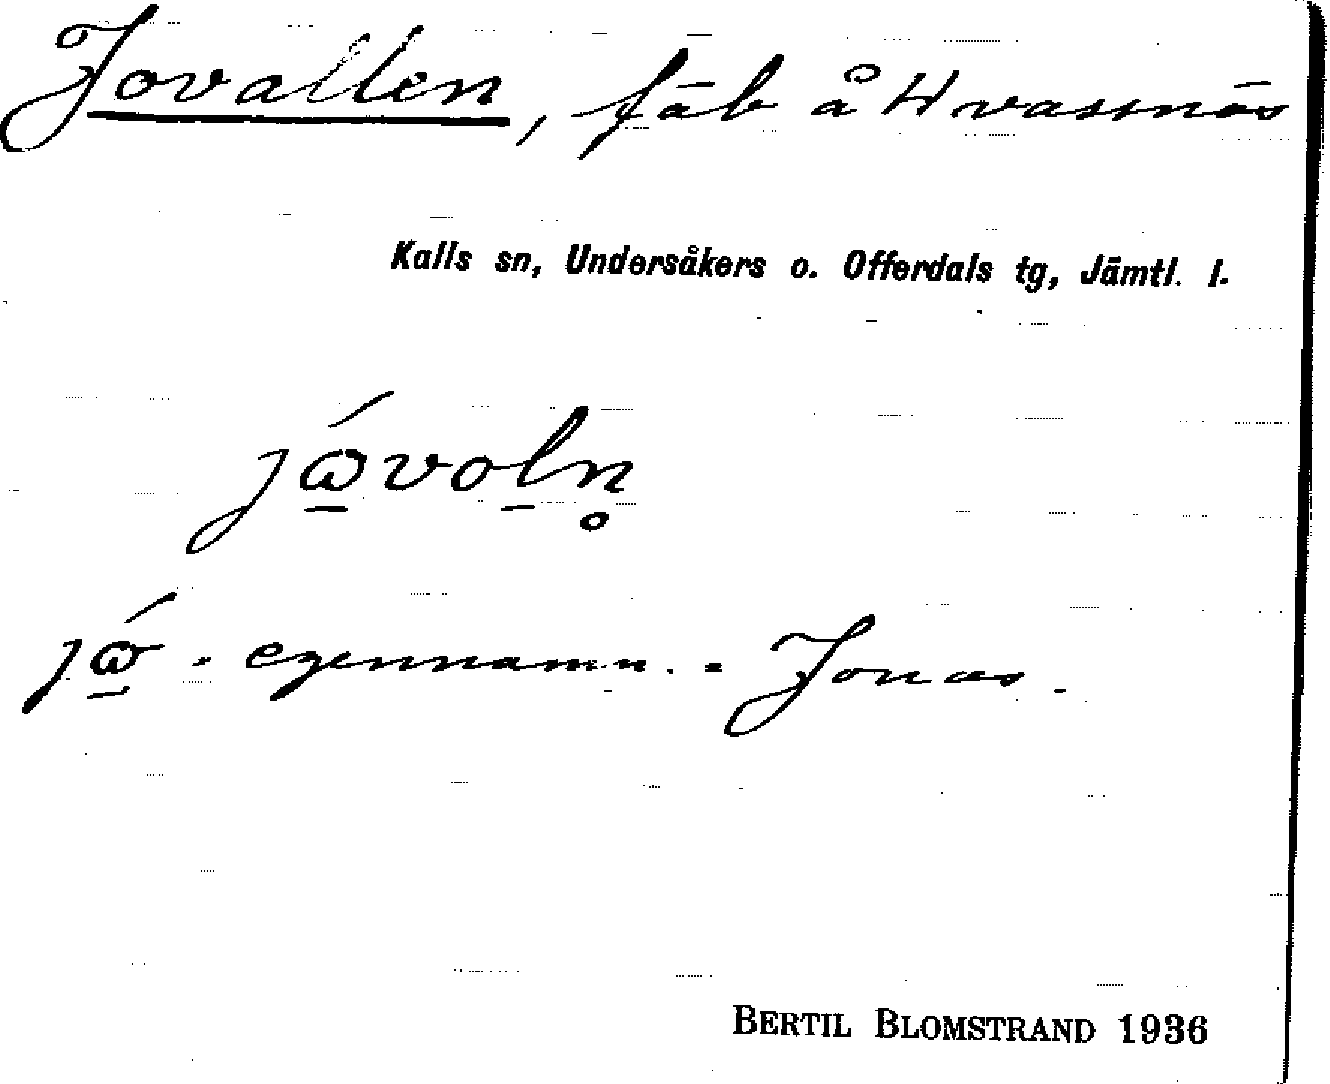 Jovallen, fäb å Hvassnäs
Kalls sn, Undersåkers o. Offerdals tg, Jämtl. l.
jώ̱voḻn̥
jώ̱ - egennamn. - Jonas.
BERTIL BLOMSTRAND 1936